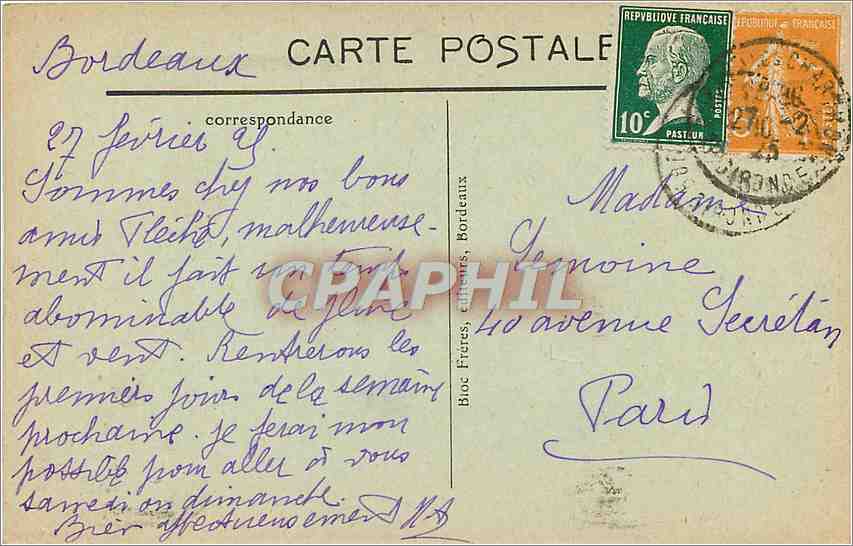 Bordeaux
CARTE POSTALE
REPVBLIQUE FRANÇAISE
POSTES
10c
PASTEUR
REPUBLIQUE FRANÇAISE
27
25
GIRONDE
correspondance
27 février 25
Sommes chez nos bons
amis Fléché, malheureuse-
ment il fait un temps
abominable de pluie
et vent. Rentrerons les
premiers jours de la semaine
prochaine. Je ferai mon
possible pour aller à vous
samedi ou dimanche.
Bien affectueusement
Bloc Frères, éditeurs, Bordeaux
Madame
Lemoine
40 avenue Secrétan
Paris
CPAPHIL